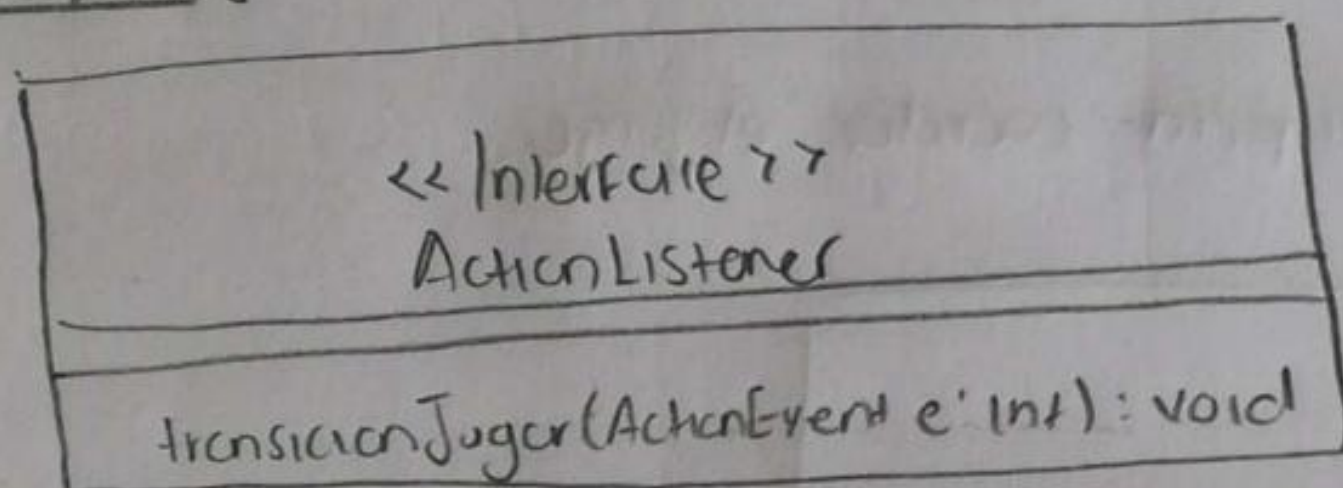 <<Interface>>
ActionListener
transicionJugar(ActionEvent e: int): void